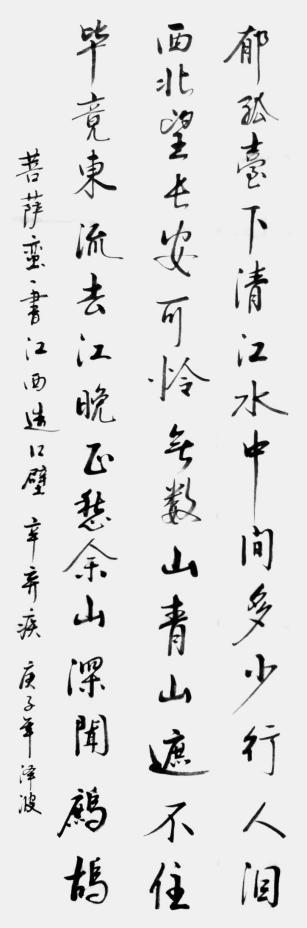 郁孤臺下清江水中间多少行人泪
西北望长安可怜无数山青山遮不住
毕竟東流去江晚正愁余山深闻鹧鸪
菩萨蛮·書江西造口壁 辛弃疾 庚子年泽波